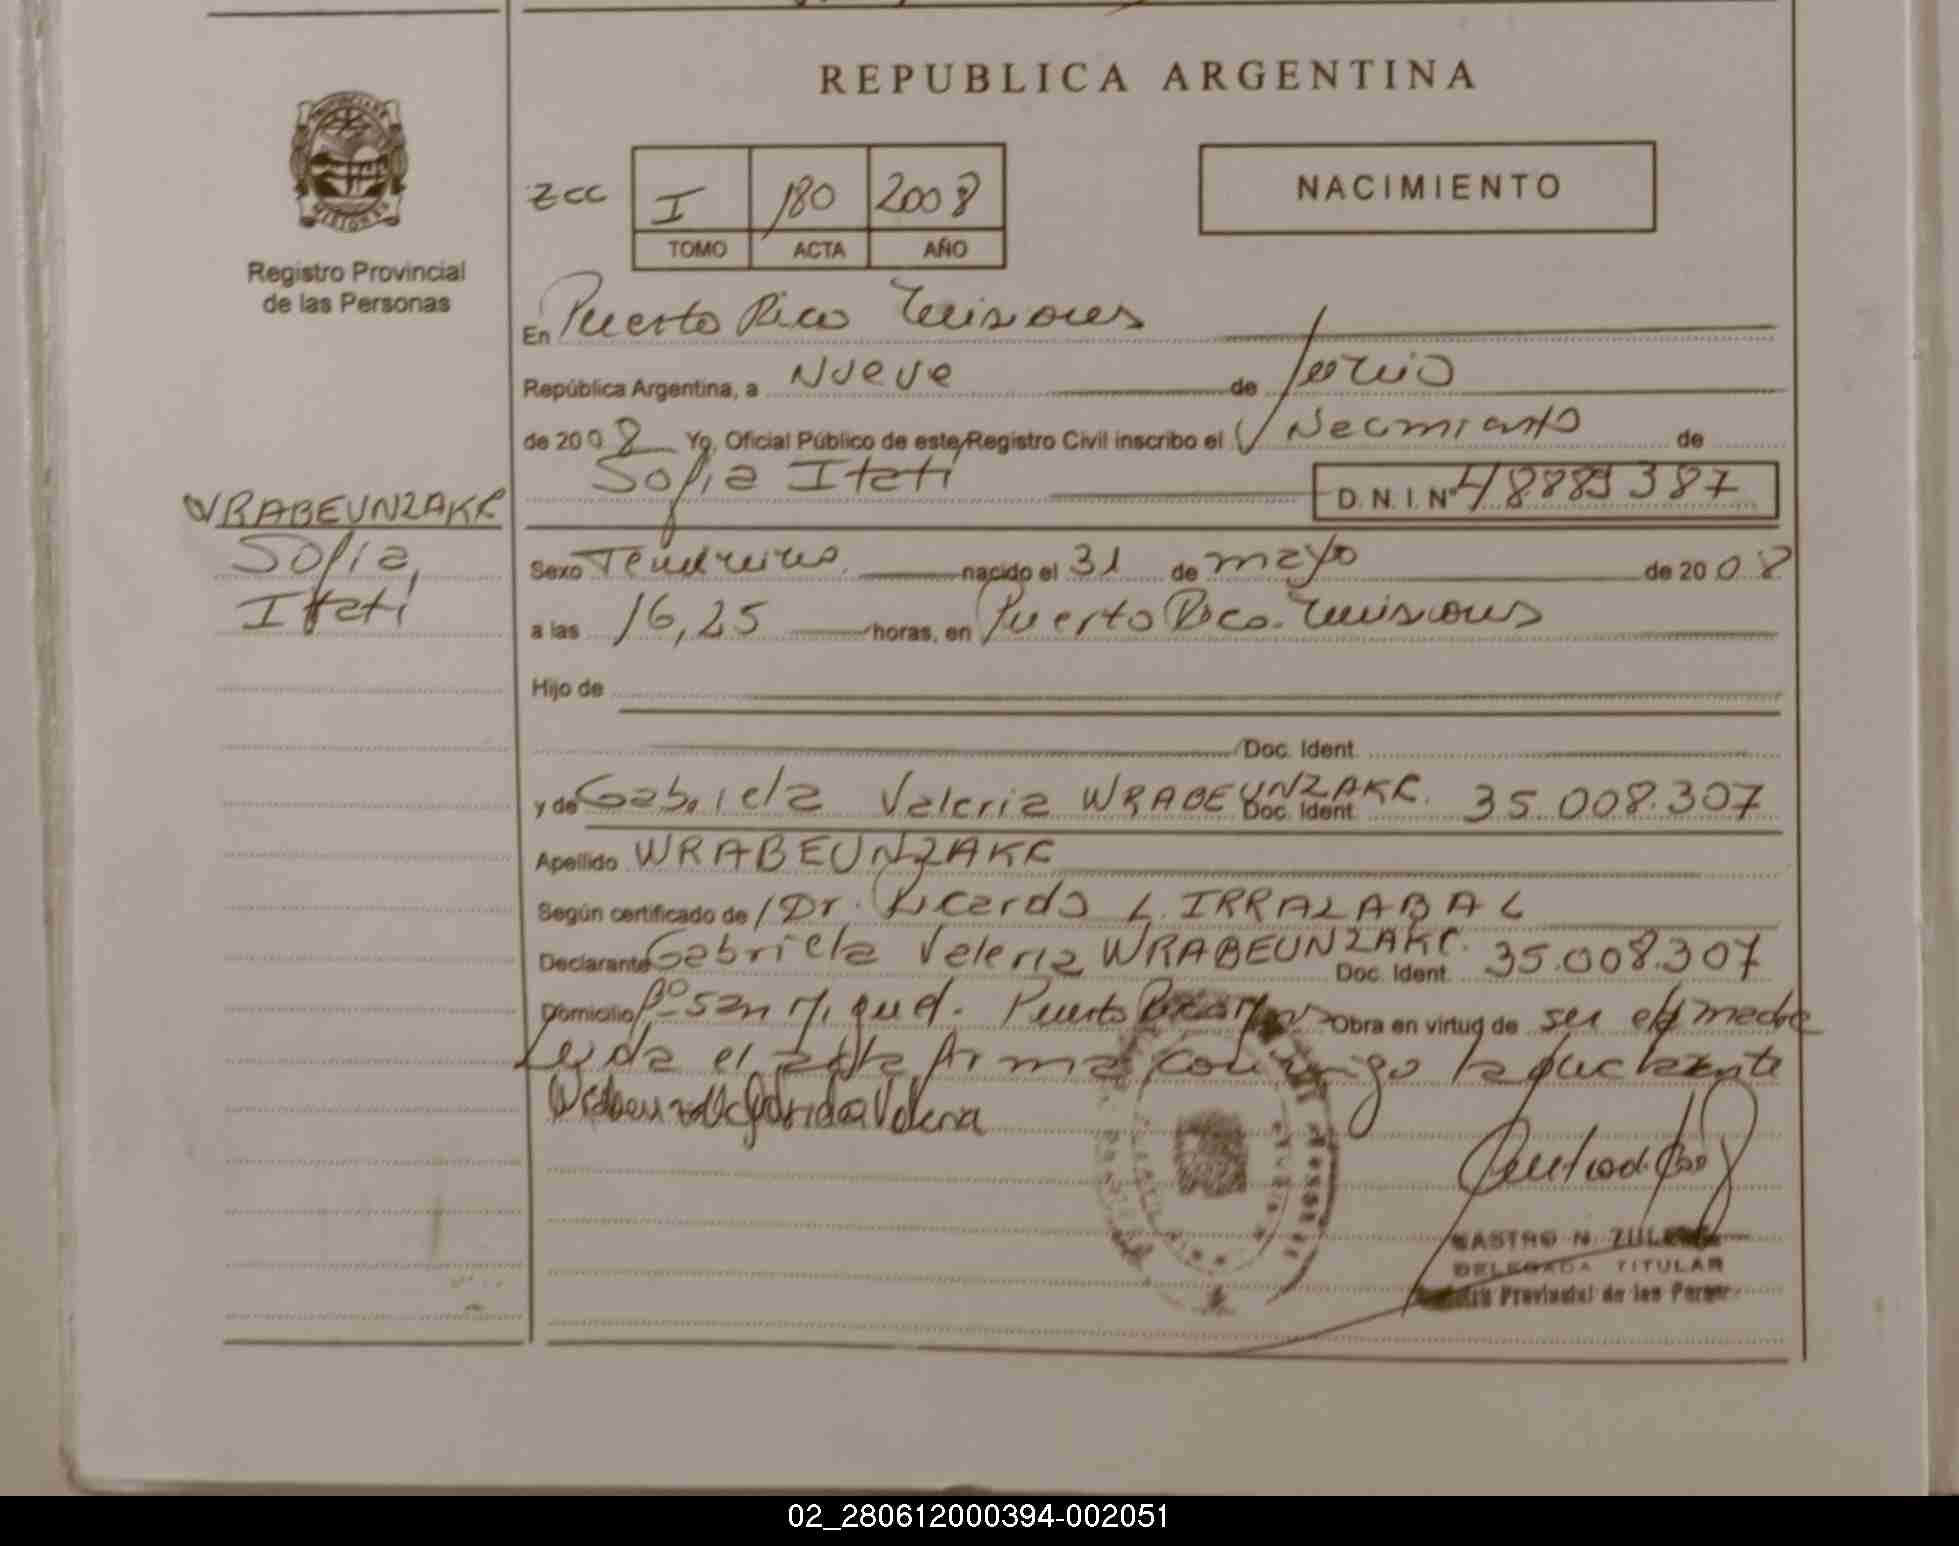 REPUBLICA ARGENTINA
Registro Provincial
de las Personas
zcc I 180 2008
TOMO ACTA AÑO
NACIMIENTO
En Puerto Rico Misiones
República Argentina, a Nueve de Junio
de 2008 Yo, Oficial Público de este Registro Civil inscribo el Nacimiento de
Sofia Itati D.N.I. Nº 48889387
WRABEUNZAKK
Sofia,
Itati
Sexo Femenino nacido el 31 de mayo de 2008
a las 16,25 horas, en Puerto Rico. Misiones
Hijo de
Doc. Ident.
y de Gabriela Valeria WRABEUNZAKK. Doc. Ident. 35.008.307
Apellido WRABEUNZAKK
Según certificado de Dr. Ricardo L. IRRALABAL
Declarante Gabriela Valeria WRABEUNZAKK. Doc. Ident. 35.008.307
Domicilio Bº San Miguel. Puerto Rico Obra en virtud de ser madre
Leida el acta firma conmigo la
Gabriela Valeria
CASTRO N.
DELEGADA TITULAR
Provincial de las
02_280612000394-002051